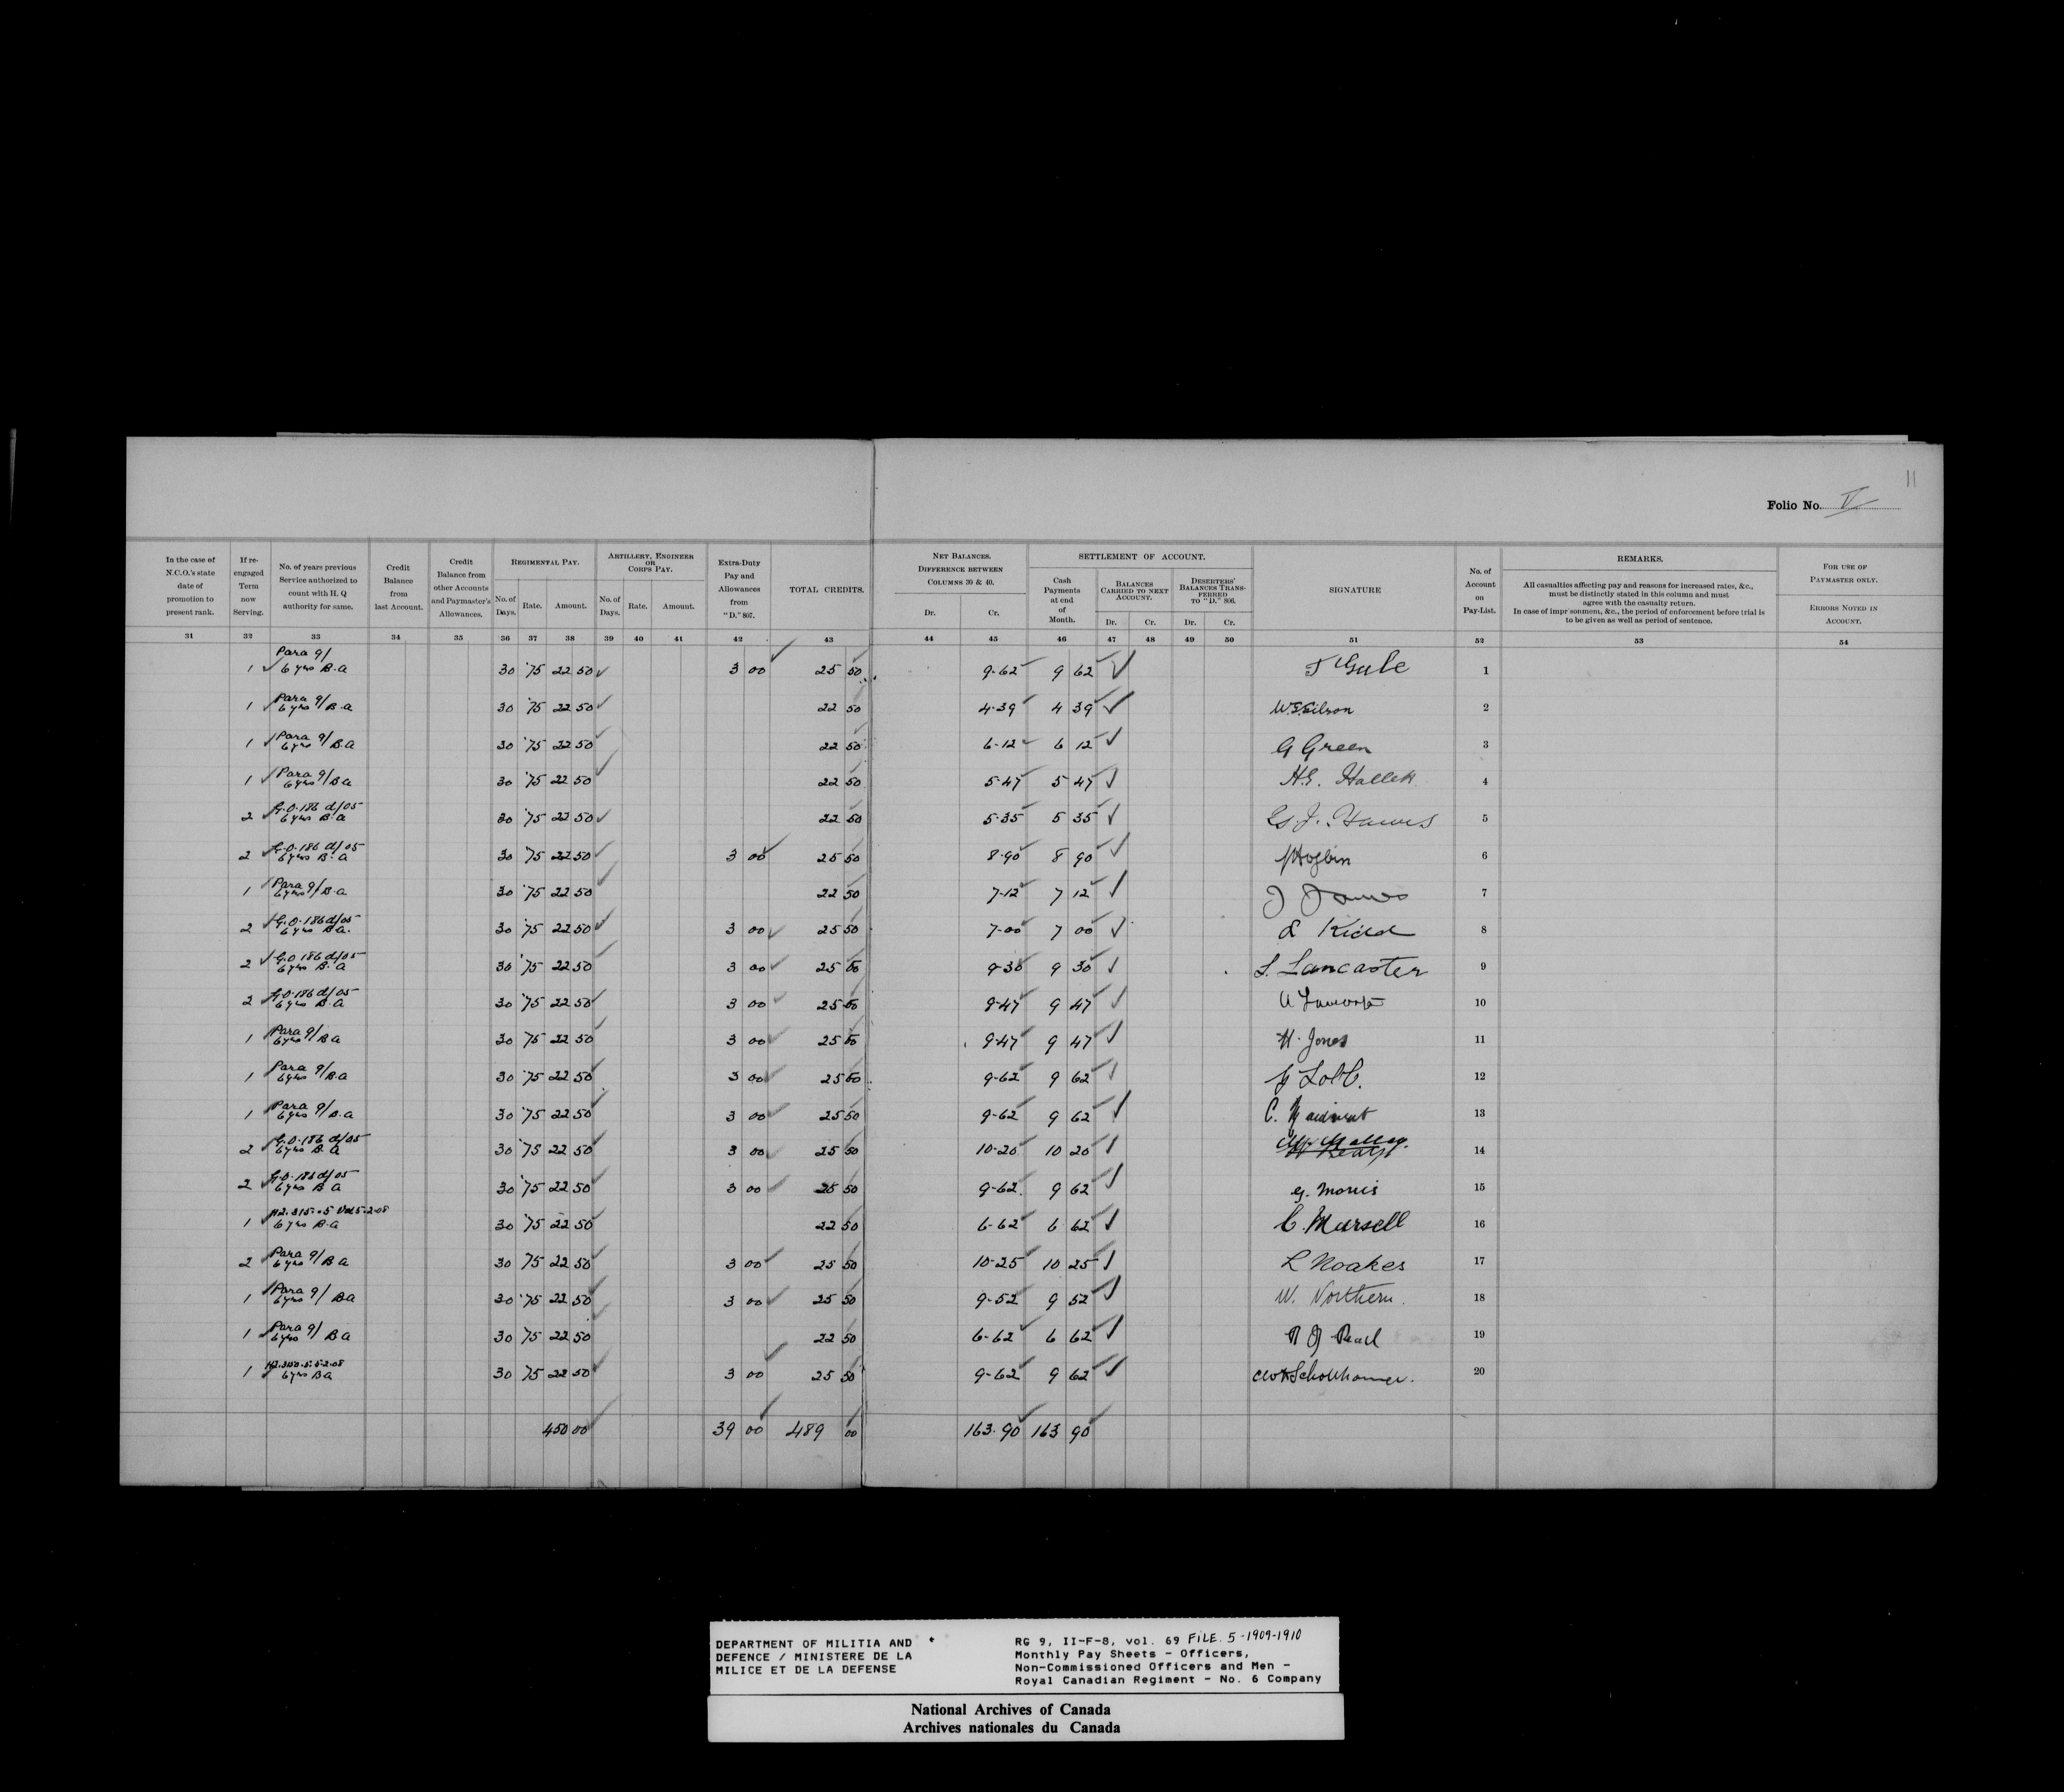 11
Folio No. V
In the case of N.C.O.'s state date of promotion to present rank.
If re-engaged Term now Serving.
No. of years previous Service authorized to count with H. Q authority for same.
Credit Balance from last Account.
Credit Balance from other Accounts and Paymaster's Allowances.
REGIMENTAL PAY.
No. of Days. Rate. Amount.
ARTILLERY, ENGINEER OR CORPS PAY.
No. of Days. Rate. Amount.
Extra-Duty Pay and Allowances from "D." 867.
TOTAL CREDITS.
NET BALANCES. DIFFERENCE BETWEEN COLUMNS 30 & 40.
Dr. Cr.
SETTLEMENT OF ACCOUNT.
Cash Payments at end of Month.
BALANCES CARRIED TO NEXT ACCOUNT.
Dr. Cr.
DESERTERS' BALANCES TRANSFERRED TO "D." 866.
Dr. Cr.
SIGNATURE
No. of Account on Pay-List.
REMARKS.
All casualties affecting pay and reasons for increased rates, &c., must be distinctly stated in this column and must agree with the casualty return.
In case of impr sonment, &c., the period of enforcement before trial is to be given as well as period of sentence.
FOR USE OF PAYMASTER ONLY.
ERRORS NOTED IN ACCOUNT.
31 32 33 34 35 36 37 38 39 40 41 42 43 44 45 46 47 48 49 50 51 52 53 54
1 Para 9/ 6 yrs B.A 30 75 22 50 3 00 25 50 9-62 9 62 1
1 Para 9/ 6 yrs B.A 30 75 22 50 22 50 4-39 4 39 W.E. Eilson 2
1 Para 9/ 6 yrs B.A 30 75 22 50 22 50 6-12 6 12 G Green 3
1 Para 9/ 6 yrs B.A 30 75 22 50 22 50 5-47 5 47 H.E. Hallett 4
2 G.O. 186 d/05 6 yrs B.A 30 75 22 50 22 50 5-35 5 35 5
2 G.O. 186 d/05 6 yrs B.A 30 75 22 50 3 00 25 50 8-90 8 90 J Hogben 6
1 Para 9/ 6 yrs B.A 30 75 22 50 22 50 7-12 7 12 J James 7
2 G.O. 186 d/05 6 yrs B.A. 30 75 22 50 3 00 25 50 7-00 7 00 Kidd 8
2 G.O 186 d/05 6 yrs B.A 30 75 22 50 3 00 25 50 9-30 9 30 Lancaster 9
2 G.O. 186 d/05 6 yrs B.A 30 75 22 50 3 00 25 50 9-47 9 47 10
1 Para 9/ 6 yrs B A 30 75 22 50 3 00 25 50 9-47 9 47 H. Jones 11
1 Para 9/ 6 yrs B A 30 75 22 50 3 00 25 50 9-62 9 62 Lobb. 12
1 Para 9/ 6 yrs B.A 30 75 22 50 3 00 25 50 9-62 9 62 C. Maidment 13
2 G.O. 186 d/05 6 yrs B.A 30 75 22 50 3 00 25 50 10-20 10 20 14
2 G.O. 186 d/05 6 yrs B A 30 75 22 50 3 00 25 50 9-62 9 62 G. Morris 15
1 6 yrs B.A 30 75 22 50 22 50 6-62 6 62 C. Mursell 16
2 Para 9/ 6 yrs B A 30 75 22 50 3 00 25 50 10-25 10 25 L Noakes 17
1 Para 9/ 6 yrs B A 30 75 22 50 3 00 25 50 9-52 9 52 W. Northern. 18
1 Para 9/ 6 yrs B A 30 75 22 50 22 50 6-62 6 62 Pearl 19
1 6 yrs B A 30 75 22 50 3 00 25 50 9-62 9 62 20
450 00 39 00 489 00 163.90 163 90
DEPARTMENT OF MILITIA AND
DEFENCE / MINISTERE DE LA
MILICE ET DE LA DEFENSE
RG 9, II-F-8, vol. 69 FILE. 5-1909-1910
Monthly Pay Sheets - Officers,
Non-Commissioned Officers and Men -
Royal Canadian Regiment - No. 6 Company
National Archives of Canada
Archives nationales du Canada